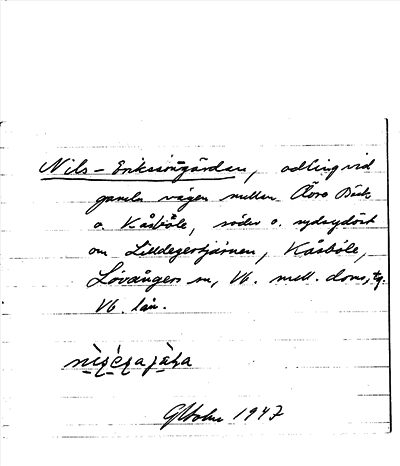 Nils-Erikssongärdan, odling vid
gamla vägen mellan Övre Bäck
o. Kåsböle, söder o. sydsydöst
om Lilldegertjärnen, Kåsböle,
Lövångers sn, Vb. mell. doms, tg.
Vb. län.
GHolm 1947